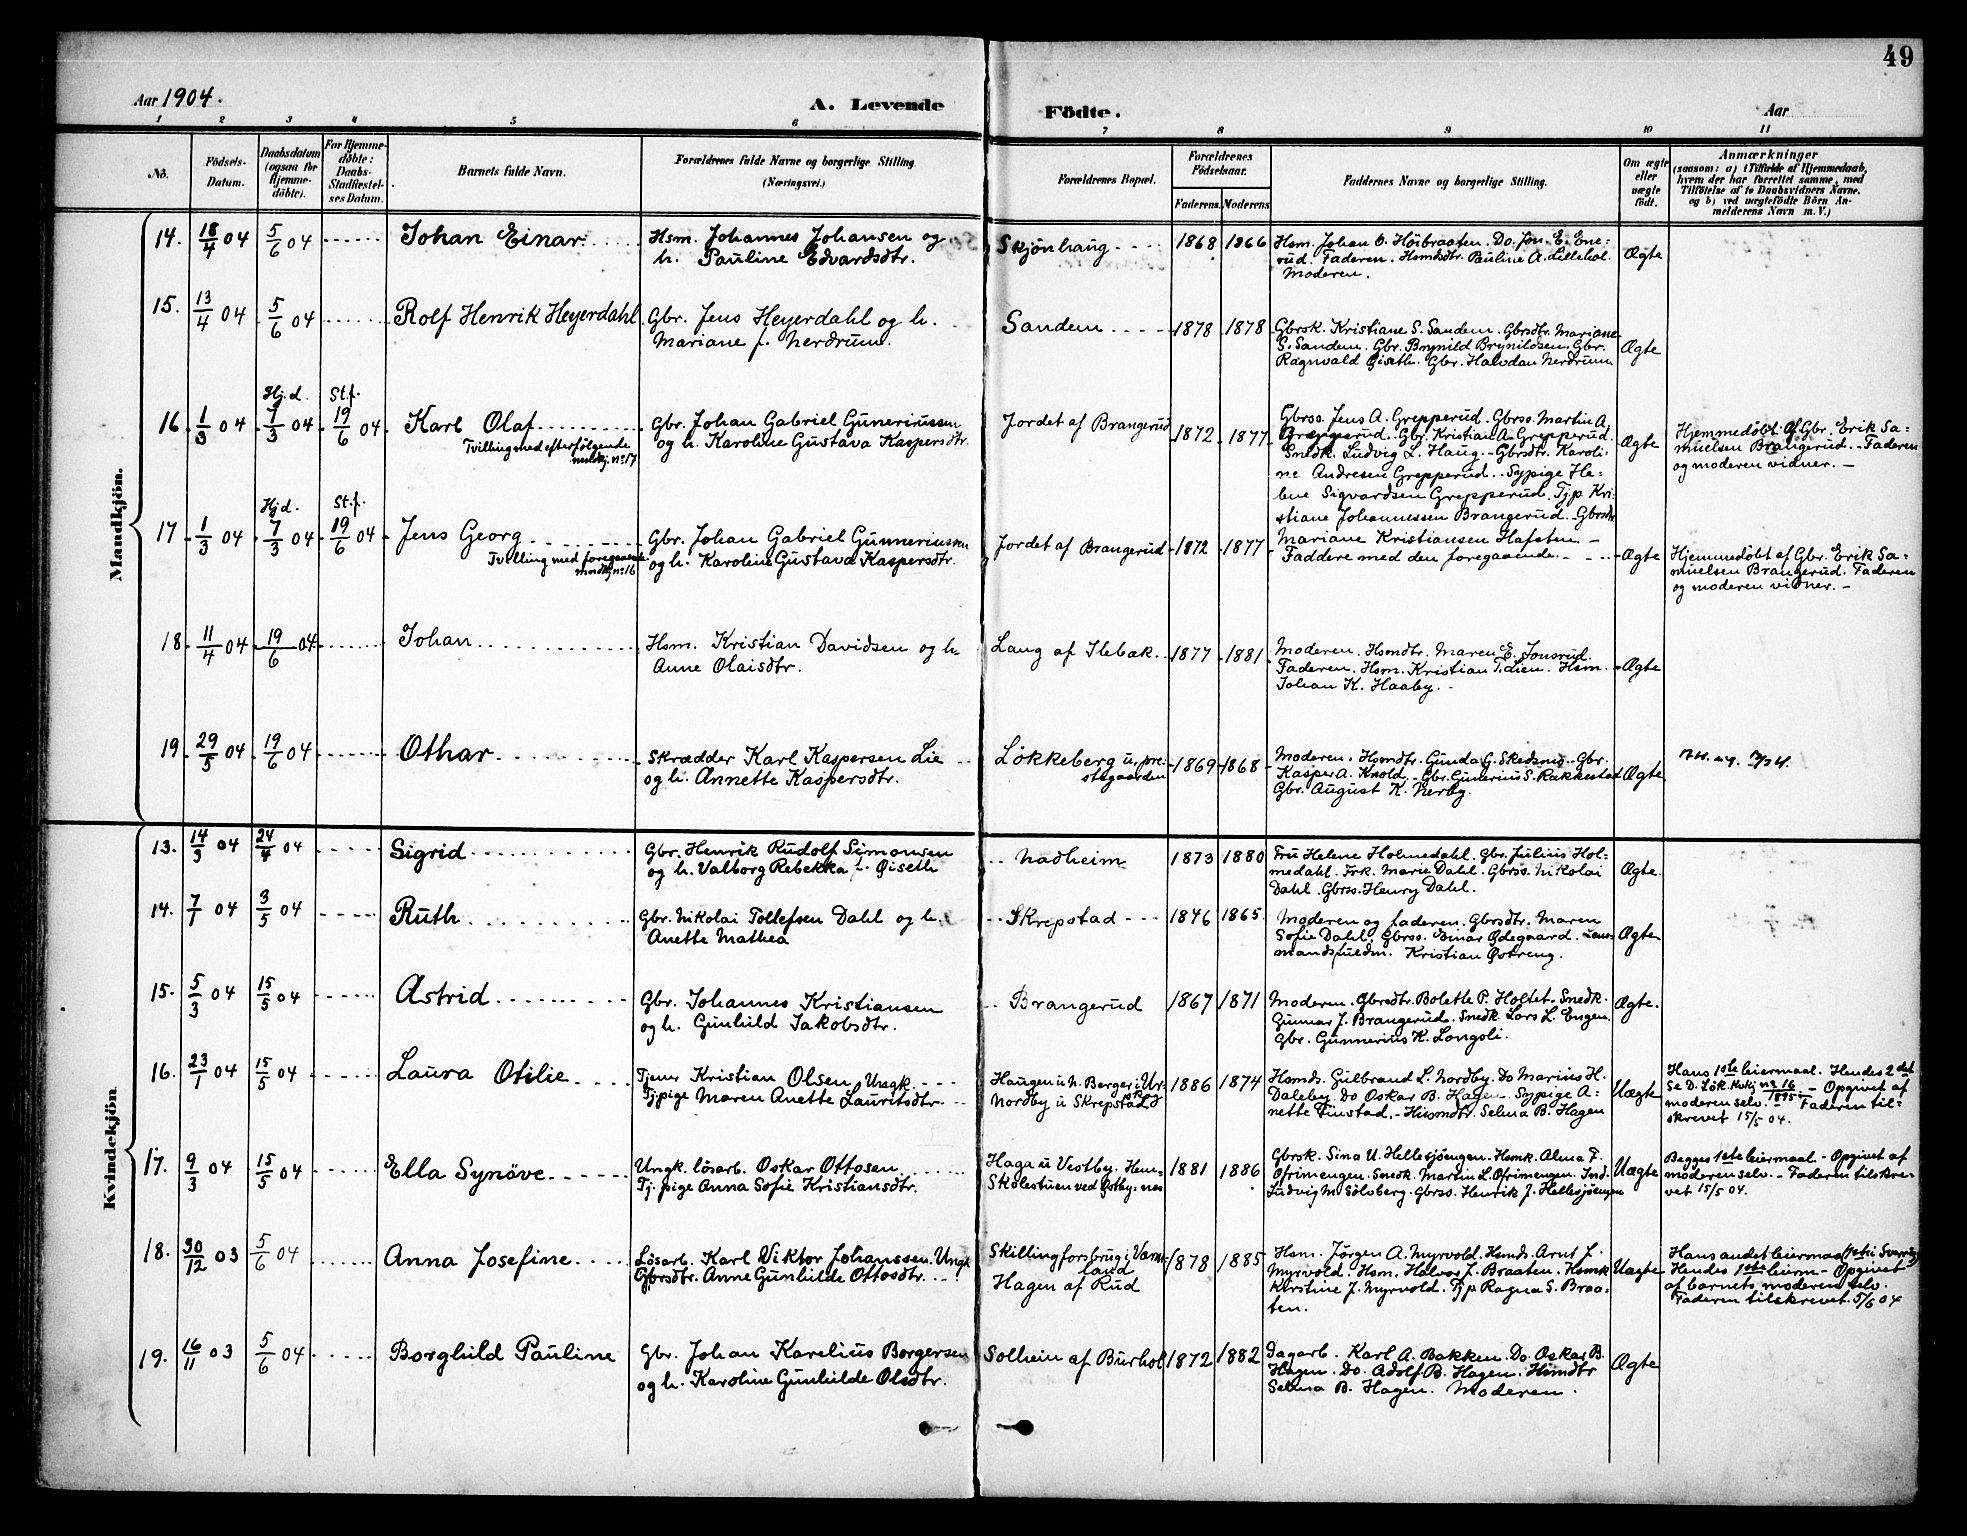 49
Aar 1904.
A. Levende
Födte.
Aar
1 2 3 4 5 6 7 8 9 10 11
No.
Födsels-
Datum.
Daabsdatum
(ogsaa for
Hjemme-
döbte).
For Hjemme-
döbte:
Daabs-
Stadfæstel-
ses Datum.
Barnets fulde Navn.
Forældrenes fulde Navne og borgerlige Stilling.
(Næringsvei.)
Forældrenes Bopæl.
Forældrenes
Födselsaar.
Faderens. Moderens.
Faddernes Navne og borgerlige Stilling.
Om ægte
eller
uægte
födt.
Anmærkninger
(saasom: a) i Tilfælde af Hjemmedaab,
hvem der har forrettet samme, med
Tilföielse af to Daabsvidners Navne.
og b) ved uægtefödte Börn An-
melderens Navn m. V.)
Mandkjön.
14. 18/4 04 5/6 04 Johan Einar
Hsm. Johannes Johansen og
h. Pauline Edvardsdtr.
Skjönhaug 1868 1866
Hsm. Johan O. Höibraaten. Do. Jon. E. Ene-
rud. Faderen. Hsmdsdtr. Pauline A. Lillehol.
Moderen.
Ægte
15. 13/4 04 5/6 04 Rolf Henrik Heyerdahl
Gbr. Jens Heyerdahl og h.
Mariane f. Nerdrum.
Sandem 1878 1878
Gbrsk. Kristiane S. Sandem. Gbrsdtr. Mariane
S. Sandem. Gbr. Brynild Brynildsen. Gbr.
Ragnvald Giseth. Gbr. Halvdan Nerdrum
Ægte
Hj.d. St.f.
16. 1/3 04 7/3 04 19/6 04 Karl Olaf
Tvilling med efterfölgende
mdkj. no 17
Gbr. Johan Gabriel Guneriussen
og h. Karoline Gustava Kaspersdtr.
Jordet af Brangerud 1872 1877
Gbrss. Jens A. Grepperud. Gbrss. Martin A.
Grepperud. Gbr. Kristian A. Grepperud.
Snedk. Ludvig L. Haug. Gbrsdtr. Karoli-
ne Andresen Grepperud. Sypige He-
lene Sigvardsen Grepperud. Tjp. Kri-
stiane Johannessen Brangerud. Gbrsdtr
Mariane Kristiansen Hafsten.
Ægte
Hjemmedöbt af Gbr. Erik Sa-
muelsen Brangerud. Faderen
og moderen vidner.
Hj.d. St.f.
17 1/3 04 7/3 04 19/6 04 Jens Georg
Tvilling med foregaaende
mndkj no 16
Gbr. Johan Gabriel Gunneriussen
og h. Karoline Gustava Kaspersdtr.
Jordet af Brangerud 1872 1877
Faddere med den foregaaende.
Ægte
Hjemmedöbt af Gbr. Erik Sa-
muelsen Brangerud. Faderen
og moderen vidner.
18 11/4 04 19/6 04 Johan
Hsm. Kristian Davidsen og h.
Anne Olaisdtr.
Laug af Ilebæk 1877 1881
Moderen. Hsmdtr. Maren E. Jonsrud.
Faderen. Hsm. Kristian T. Lien. Hsm.
Johan K. Haaby.
Ægte
19 29/5 04 19/6 04 Othar
Skrædder Karl Kaspersen Lie
og h. Annette Kaspersdtr.
Lökkeberg u. pre-
stegaarden 1869 1868
Moderen. Hsmdtr. Gunda G. Skedsmo. Gbr.
Kasper A. Krold. Gbr. Gunerius S. Rakkestad
Gbr. August K. Nerby.
Ægte
Kvindekjön
13. 14/3 04 24/4 04 Sigrid
Gbr. Henrik Rudolf Simonsen
og h. Valborg Rebekka f. Giseth
Nadheim 1873 1880
Fru Helene Holmedahl. Gbr. Julius Hol-
medahl. Frk. Marie Dahl. Gbrss. Nikolai
Dahl. Gbrss. Henry Dahl.
Ægte
14. 7/1 04 3/5 04 Ruth
Gbr. Nikolai Tollefsen Dahl og h.
Anette Mathea
Skrepstad 1846 1865
Moderen og faderen. Gbrsdtr. Maren
Sofie Dahl. Gbrss. Einar Ødegaard. Lens-
mandsfuldm. Kristian Østreng.
Ægte
15. 5/3 04 15/5 04 Astrid
Gbr. Johannes Kristiansen
og h. Gunhild Jakobsdtr.
Brangerud 1867 1871
Moderen. Gbrsdtr. Bolette P. Holtet. Snedk.
Gunnar J. Brangerud. Snedk. Lars L. Engen.
Gbr. Gunnerius K. Langsli.
Ægte.
16. 23/1 04 15/5 04 Laura Otilie
Tjener Kristian Olsen Ungk.
Tj.pige Maren Anette Lauritsdtr.
Haugen u. N. Berger i Ur-
Nordby u Skrepstad 1886 1874
Hsmds. Gulbrand L. Nordby. Do Marius H.
Daleby. Do Oskar B. Hagen. Sypige A-
nette Finstad. Husmdtr. Selma B. Hagen
Uægte
Hans 1ste leiermaal. Hendes 2det
Se D. Løk. Kvkj no 16 1895. Opgivet af
moderen selv. Faderen til-
skrevet 15/5 04.
17. 9/3 04 15/5 04 Ella Synöve
Ungk. lösarb. Oskar Ottosen
Tj. pige Anna Sofie Kristiansdtr.
Haga u Vestby. Hem-
Skolestuen ved Østby. nes 1881 1886
Gbrsk. Sina U. Hellesjöengen. Hsmk. Alma F.
Ofrimengen. Snedk. Martin L. Ofrimengen. Ind.
Ludvig M. Sölvberg. Gbrss. Henrik J. Hellesjöengen
Uægte
Begges 1ste leiermaal. Opgivet af
moderen selv. Faderen tilskre-
vet 15/5 04.
18. 30/12 03 5/6 04 Anna Josefine
Lösarb. Karl Viktor Johanssen. Ungk
Gbrsdtr. Anne Gunhilde Ottosdtr.
Skillingforsbrug i Værm-
land
Hagen af Rud 1878 1885
Hsm. Jörgen A. Myrvold. Hsmds. Arnt J.
Myrvold. Hsm. Halvor J. Braaten. Hsmk
Kirstine J. Myrvold. Tjp Ragna S. Braa-
ten.
Uægte
Hans andet leiermaal (1ste i Sverrig)
Hendes 1ste leierm. Opgivet
af barnets moderen selv.
Faderen tilskrevet. 5/6 04
19. 16/11 03 5/6 04 Borghild Pauline
Gbr. Johan Karelius Borgersen
og h. Karoline Gunhilde Olsdtr.
Solheim af Burhol 1872 1882
Dagarb. Karl A. Bakken. Do. Oskar B.
Hagen. Do. Adolf B. Hagen. Hsmdtr
Selma B. Hagen. Moderen.
Ægte